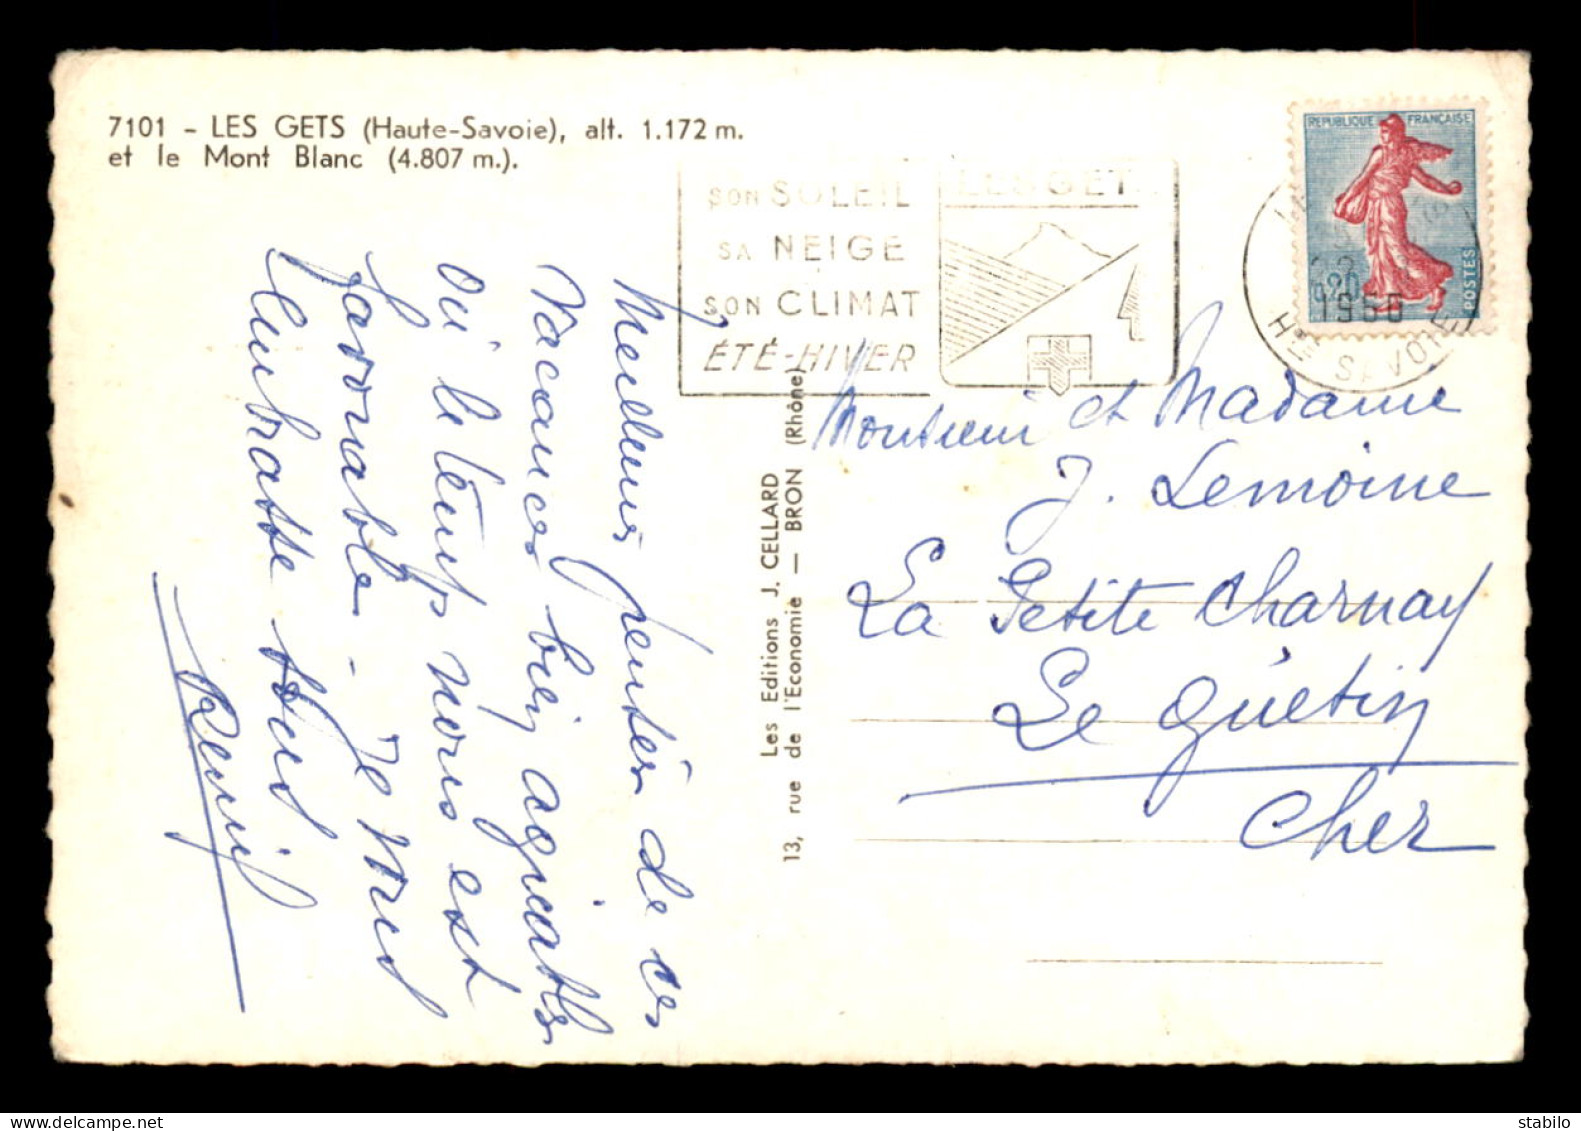 7101 - LES GETS (Haute-Savoie), alt. 1.172 m.
et le Mont Blanc (4.807 m.).
SON SOLEIL
SA NEIGE
SON CLIMAT
ÉTÉ-HIVER
LES GETS
REPUBLIQUE FRANÇAISE
0,20
POSTES
1960
Hte SAVOIE
Meilleures pensées de ces
vacances bien agréables
où le temps nous est
favorable - Je vous
embrasse tous
Les Editions J. CELLARD
13, rue de l'Economie — BRON (Rhône)
Monsieur et Madame
J. Lemoine
La Petite Charnay
Le Guétin
Cher
stamps.delcampe.net